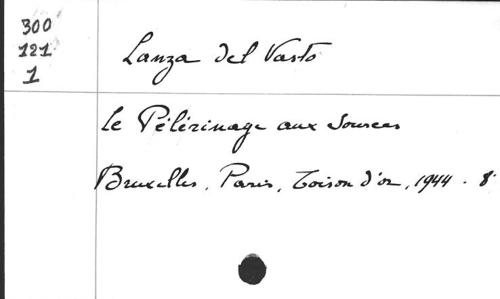 300
121
1
Lanza del Vasto
le Pélérinage aux Sources
Bruxelles, Paris, Toison d'or, 1944. 8°